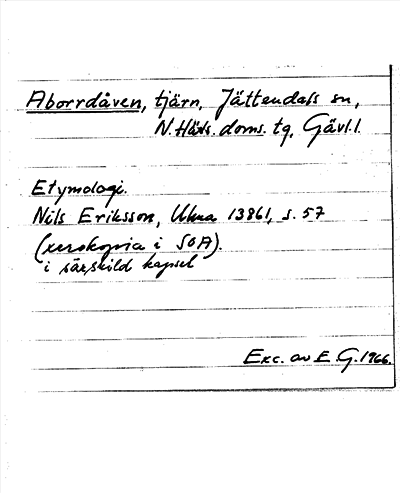 Aborrdåven, tjärn, Jättendals sn,
N. Häls. doms. tg, Gävl.l.
Etymologi.
Nils Eriksson, Ulma 13861, s. 57
(xerokopia i SOA).
i särskild kapsel
Exc. av E. G. 1966.